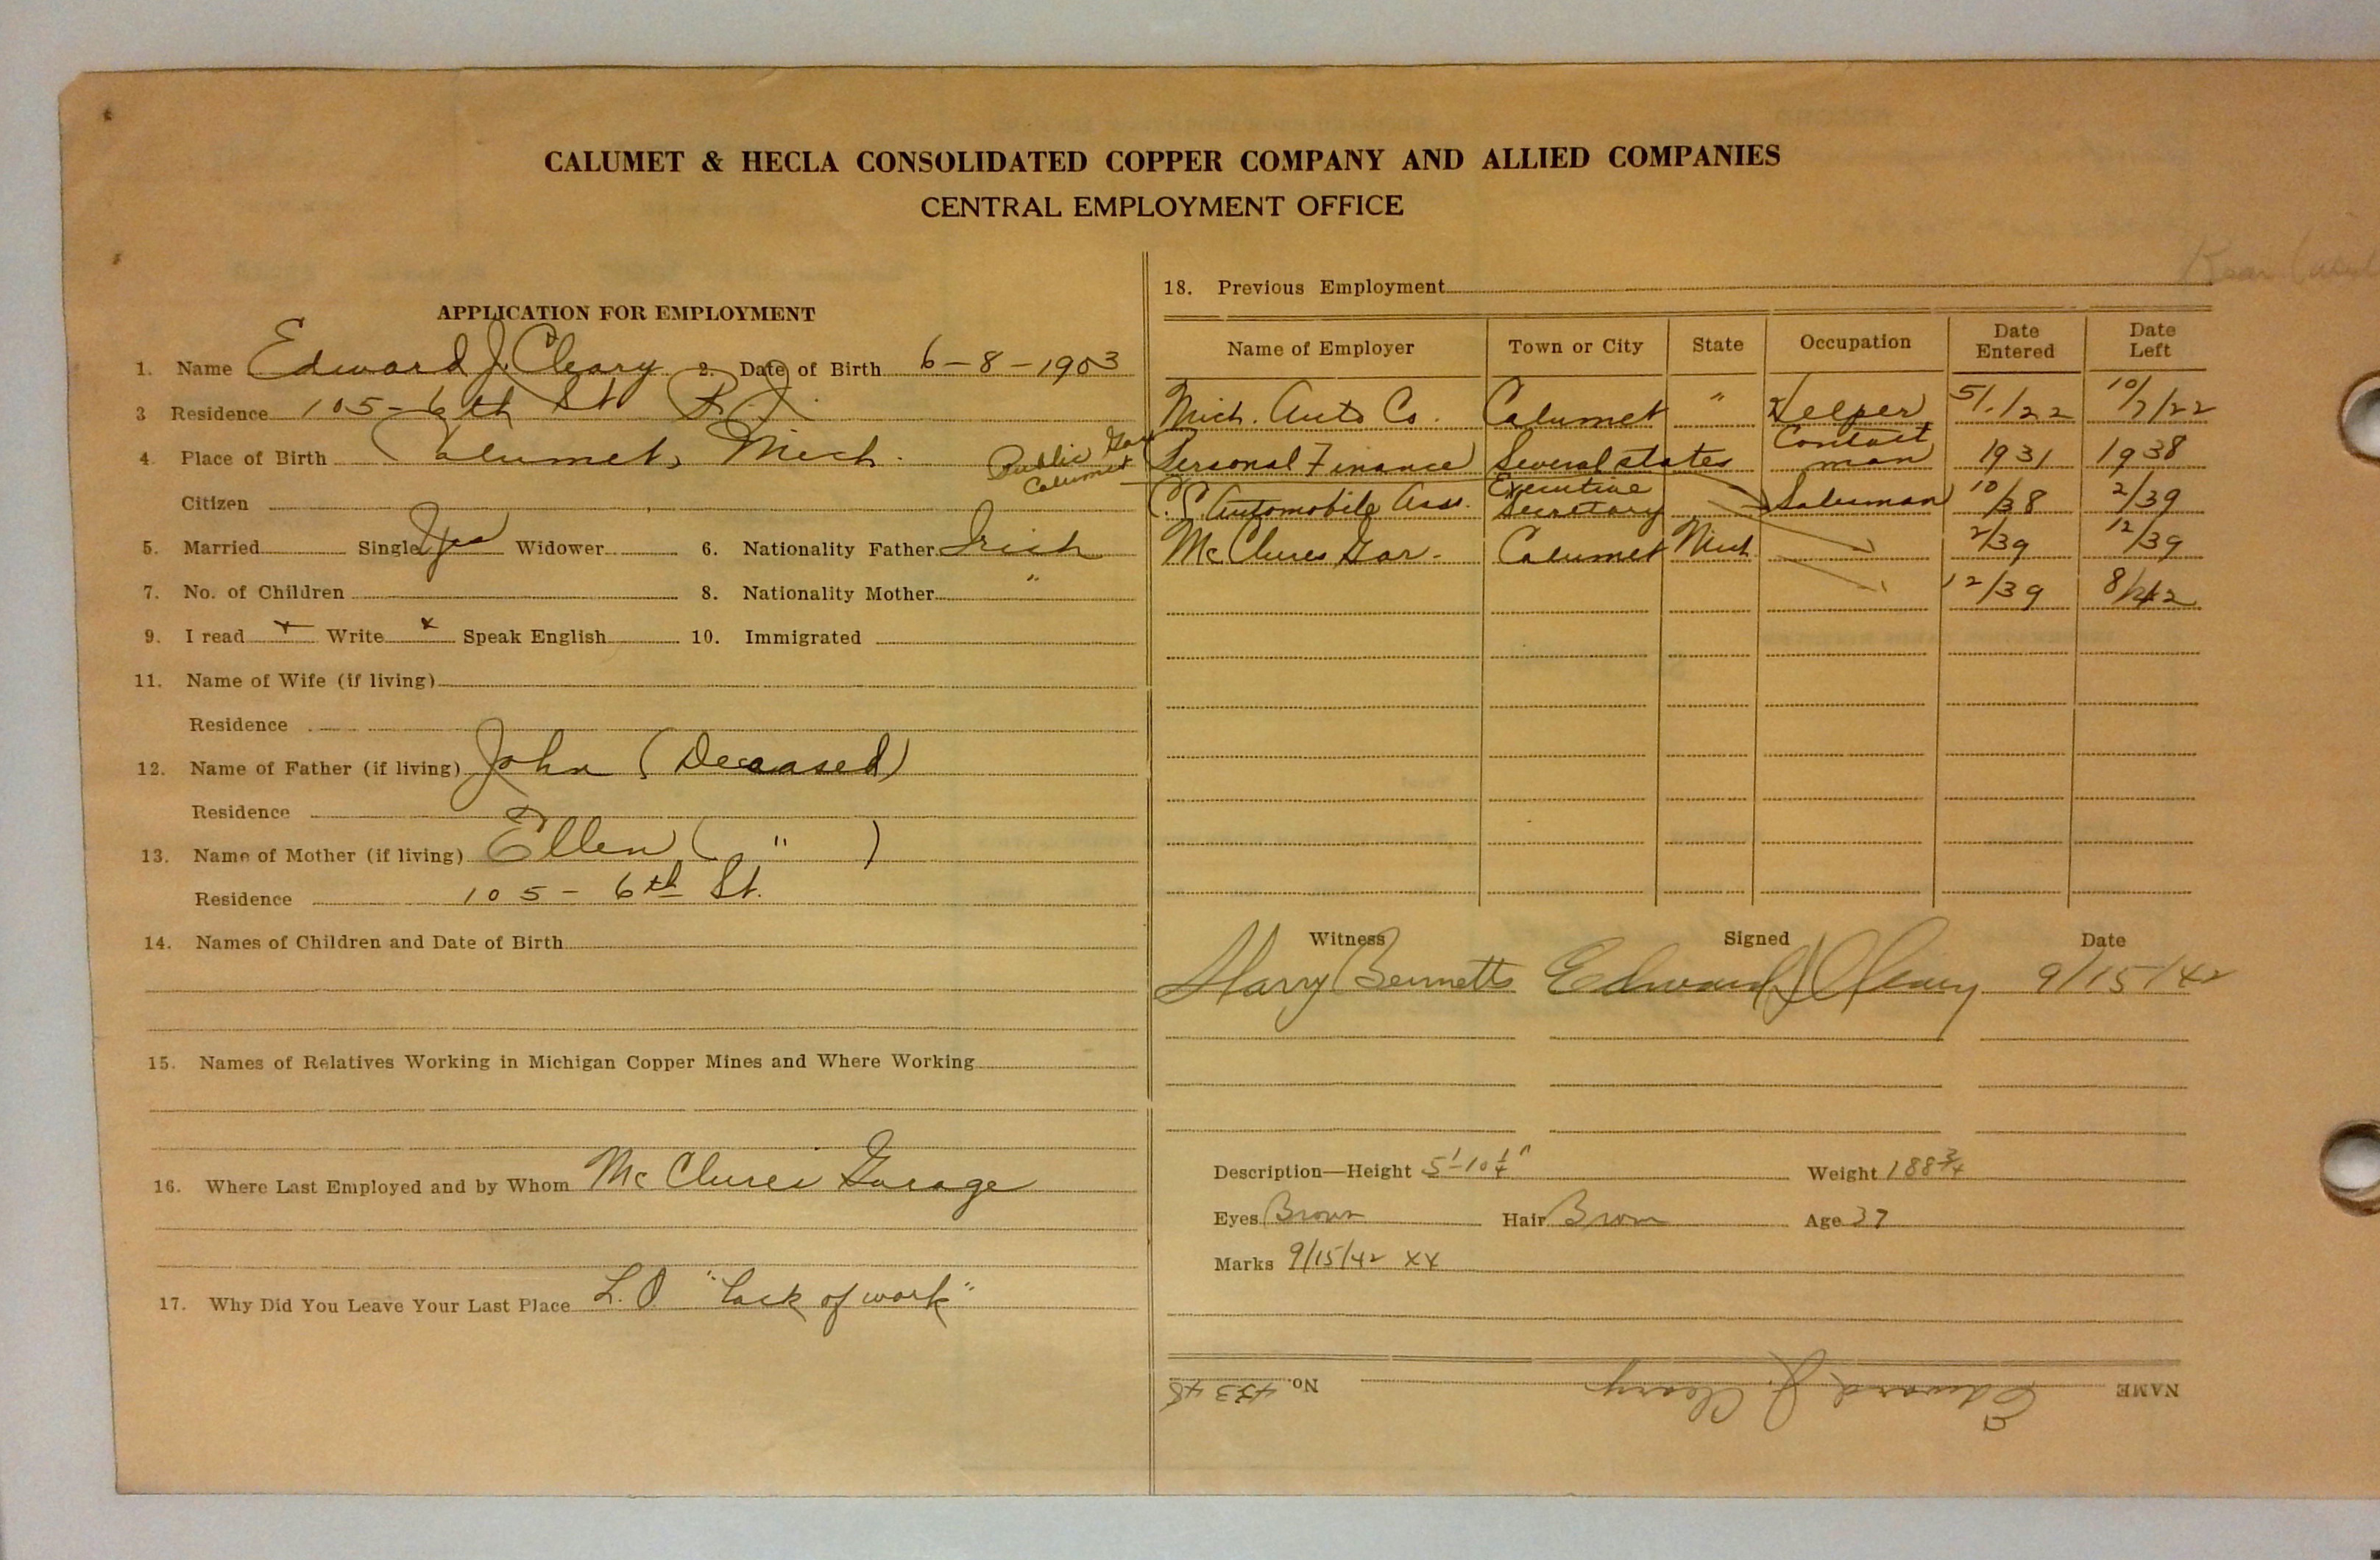 CALUMET & HECLA CONSOLIDATED COPPER COMPANY AND ALLIED COMPANIES
CENTRAL EMPLOYMENT OFFICE
APPLICATION FOR EMPLOYMENT
1. Name Edward J. Cleary 2. Date of Birth 6-8-1903
3 Residence 105-6th St
4. Place of Birth Calumet, Mich.
Citizen
5. Married Single Yes Widower 6. Nationality Father Irish
7. No. of Children 8. Nationality Mother "
9. I read x Write x Speak English 10. Immigrated
11. Name of Wife (if living)
Residence
12. Name of Father (if living) John (Deceased)
Residence
13. Name of Mother (if living) Ellen ( " )
Residence 105- 6th St.
14. Names of Children and Date of Birth
15. Names of Relatives Working in Michigan Copper Mines and Where Working
16. Where Last Employed and by Whom McClures Garage
17. Why Did You Leave Your Last Place L.O. "Lack of work"
18. Previous Employment
Name of Employer Town or City State Occupation Date Entered Date Left
Mich. Auto Co. Calumet " Helper 5/./22 10/7/22
Public Gar Calumet
Personal Finance Several states Contact man 1931 1938
Automobile Ass. Executive Secretary Salesman 10/38 2/39
McClures Gar. Calumet Mich 2/39 12/39
12/39 8/42
Witness Signed Date
Harry Bennetts Edward J Cleary 9/15/42
Description—Height 5'-10 1/4" Weight 188 3/4
Eyes Brown Hair Brown Age 37
Marks 9/15/42 XX
NAME Edward J. Cleary No. 45348